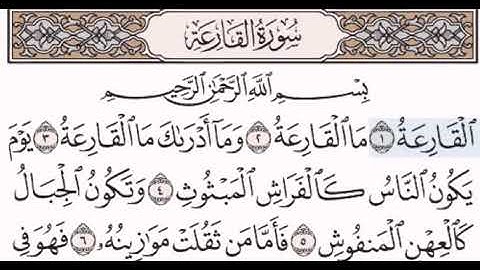 سُورَةُ القَارِعَةِ
بِسْمِ ٱللَّهِ ٱلرَّحْمَٰنِ ٱلرَّحِيمِ
ٱلْقَارِعَةُ ١ مَا ٱلْقَارِعَةُ ٢ وَمَآ أَدْرَىٰكَ مَا ٱلْقَارِعَةُ ٣ يَوْمَ
يَكُونُ ٱلنَّاسُ كَٱلْفَرَاشِ ٱلْمَبْثُوثِ ٤ وَتَكُونُ ٱلْجِبَالُ
كَٱلْعِهْنِ ٱلْمَنفُوشِ ٥ فَأَمَّا مَن ثَقُلَتْ مَوَٰزِينُهُۥ ٦ فَهُوَ فِى